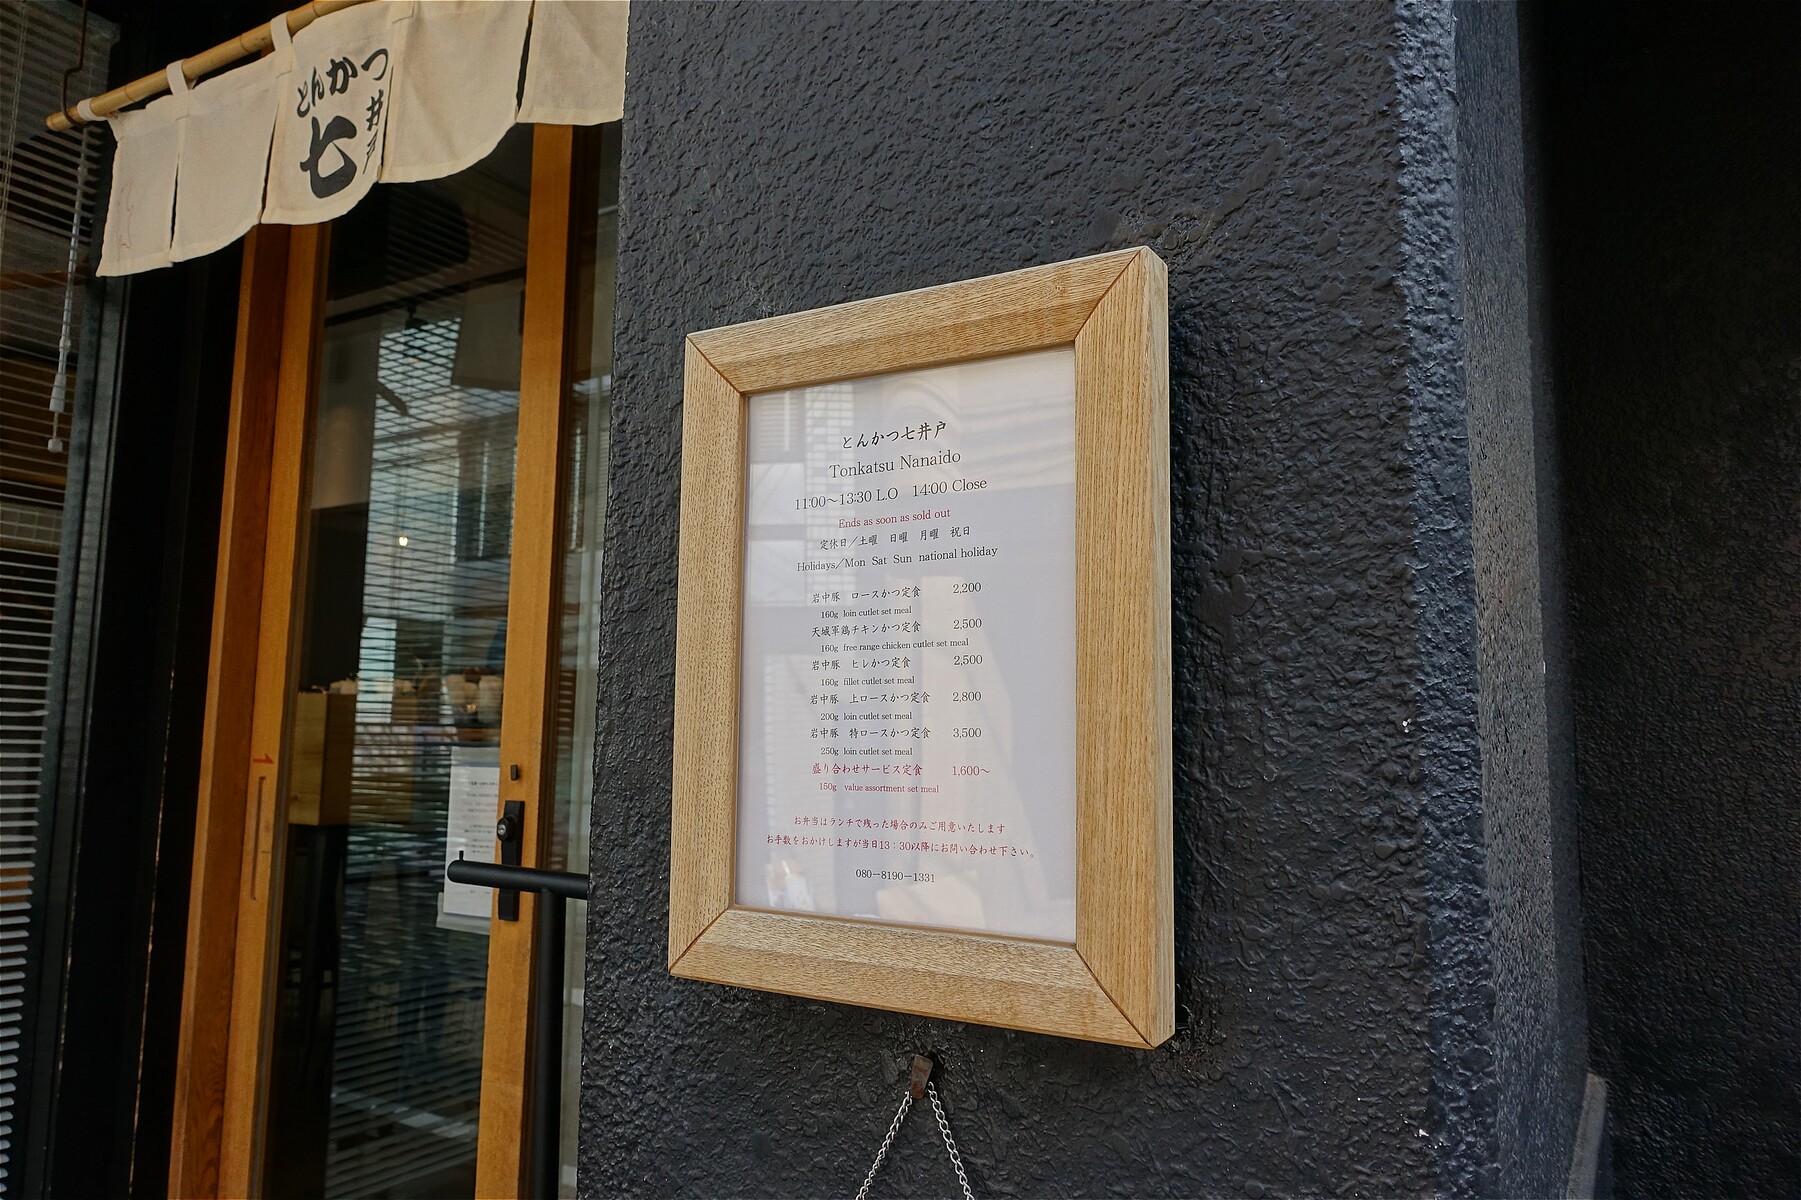 とんかつ
七
井戸
とんかつ七井戸
Tonkatsu Nanaido
11:00～13:30 L.O 14:00 Close
Ends as soon as sold out
定休日／土曜 日曜 月曜 祝日
Holidays／Mon Sat Sun national holiday
岩中豚 ロースかつ定食 2,200
160g loin cutlet set meal
天城軍鶏チキンかつ定食 2,500
160g free range chicken cutlet set meal
岩中豚 ヒレかつ定食 2,500
160g fillet cutlet set meal
岩中豚 上ロースかつ定食 2,800
200g loin cutlet set meal
岩中豚 特ロースかつ定食 3,500
250g loin cutlet set meal
盛り合わせサービス定食 1,600～
150g value assortment set meal
お弁当はランチで残った場合のみご用意いたします
お手数をおかけしますが当日13：30以降にお問い合わせ下さい。
080－8190－1331